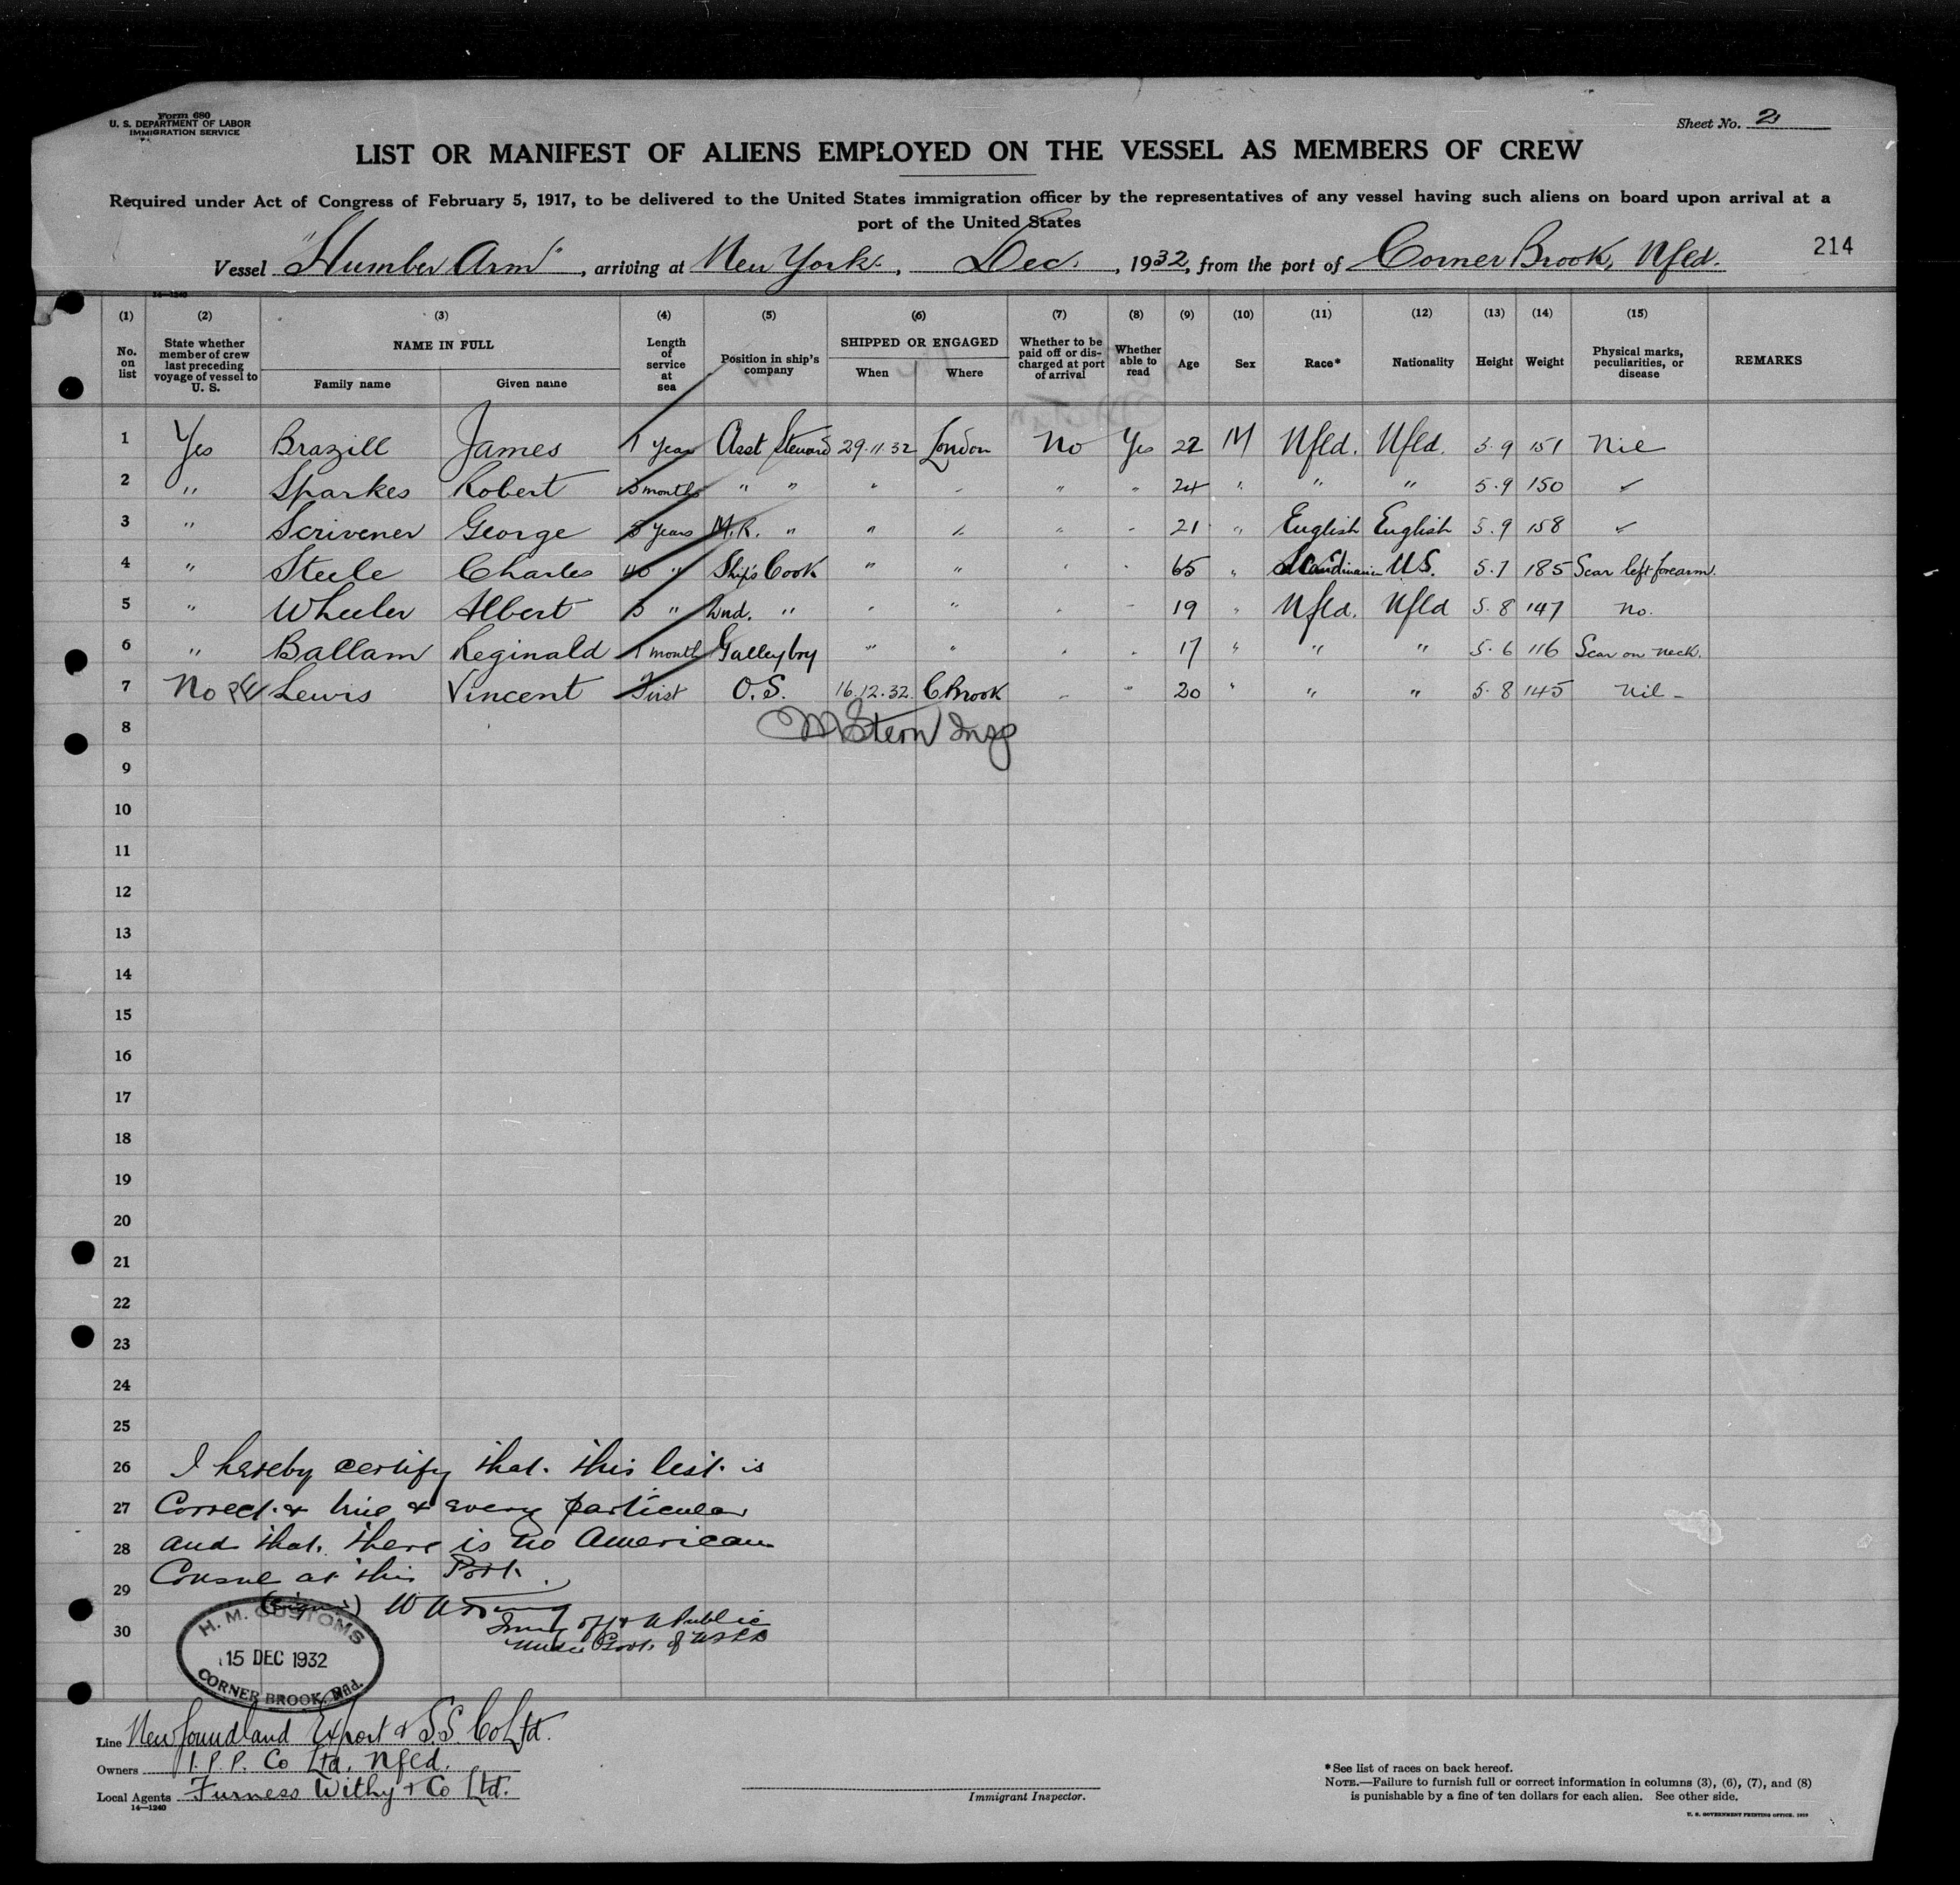 Form 680
U. S. DEPARTMENT OF LABOR
IMMIGRATION SERVICE
Sheet No. 2
LIST OR MANIFEST OF ALIENS EMPLOYED ON THE VESSEL AS MEMBERS OF CREW
Required under Act of Congress of February 5, 1917, to be delivered to the United States immigration officer by the representatives of any vessel having such aliens on board upon arrival at a
port of the United States
Vessel "Humber Arm", arriving at New York, Dec., 1932, from the port of Corner Brook, Nfld. 214
14—1240
(1) (2) (3) (4) (5) (6) (7) (8) (9) (10) (11) (12) (13) (14) (15)
No. on list State whether member of crew last preceding voyage of vessel to U. S. NAME IN FULL Family name Given name Length of service at sea Position in ship's company SHIPPED OR ENGAGED When Where Whether to be paid off or discharged at port of arrival Whether able to read Age Sex Race* Nationality Height Weight Physical marks, peculiarities, or disease REMARKS
1 Yes Brazill James 1 year Asst Steward 29.11.32 London No Yes 22 M Nfld. Nfld. 5.9 151 Nil
2 " Sparkes Robert 3 months " " " " " " 24 " " " 5.9 150 "
3 " Scrivener George 3 years M.R. " " " " " 21 " English English 5.9 158 "
4 " Steele Charles 40 " Ship's Cook " " " " 65 " Scandinavian U.S. 5.7 185 Scar left forearm.
5 " Wheeler Albert 3 " 2nd. " " " " " 19 " Nfld. Nfld 5.8 147 No.
6 " Ballam Reginald 1 month Galleyboy " " " " 17 " " " 5.6 116 Scar on neck.
7 No Lewis Vincent First O.S. 16.12.32. C Brook " " 20 " " " 5.8 145 Nil
8 Stern Insp
9
10
11
12
13
14
15
16
17
18
19
20
21
22
23
24
25
26 I hereby certify that this list is
27 Correct & true & every particular
28 and that there is no American
Consul at this Port.
29 (Signed)
30 Off & N Public
under Govt. of
H. M. CUSTOMS
15 DEC 1932
CORNER BROOK, Nfld.
Line Newfoundland Export & S.S. Co Ltd.
Owners I.P.P. Co Ltd. Nfld.
Local Agents Furness Withy & Co Ltd.
14—1240
Immigrant Inspector.
*See list of races on back hereof.
NOTE.—Failure to furnish full or correct information in columns (3), (6), (7), and (8)
is punishable by a fine of ten dollars for each alien. See other side.
U. S. GOVERNMENT PRINTING OFFICE: 1929